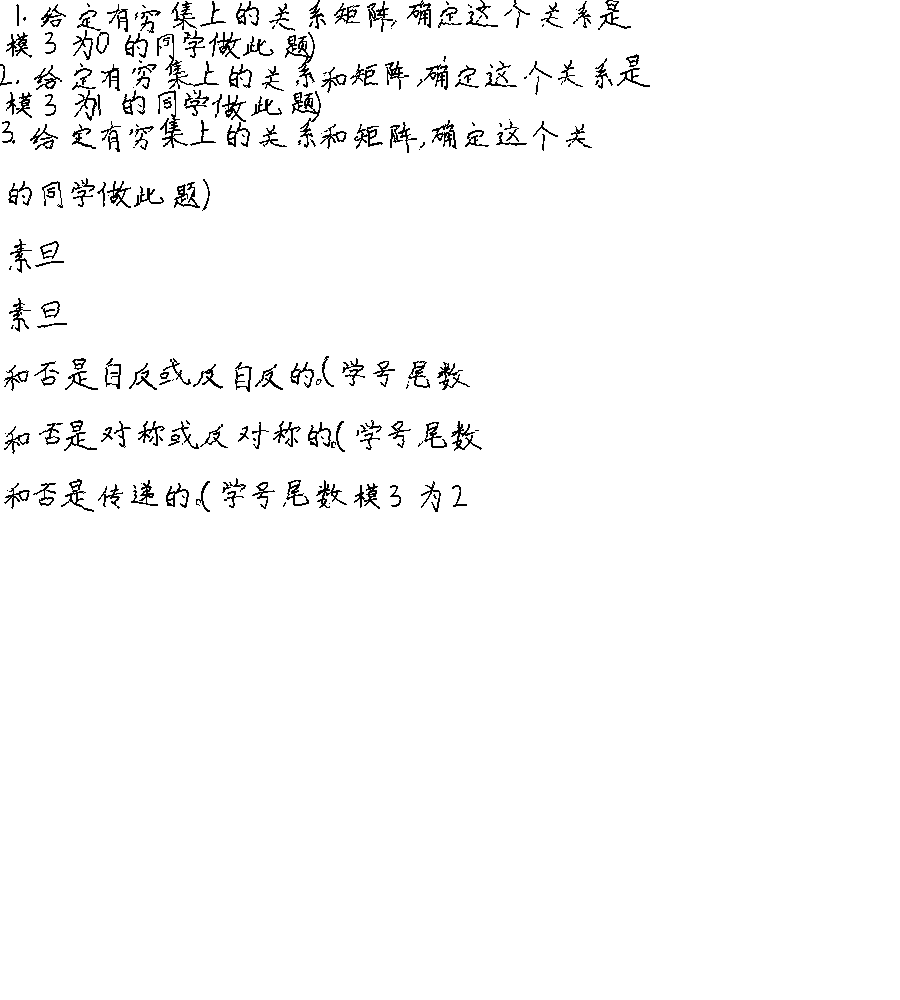 1. 给定有穷集上的关系矩阵,确定这个关系是
模3为0的同学做此题)
2. 给定有穷集上的关系和矩阵,确定这个关系是
模3为1的同学做此题)
3. 给定有穷集上的关系和矩阵,确定这个关
的同学做此题)
素旦
素旦
和否是自反或反自反的。(学号尾数
和否是对称或反对称的。(学号尾数
和否是传递的。(学号尾数模3为2